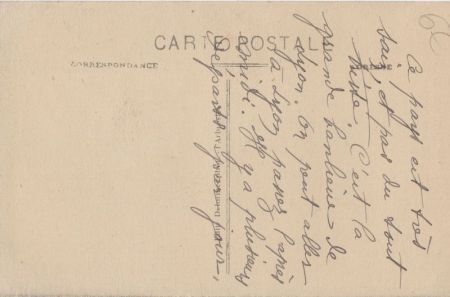 CARTE POSTALE
CORRESPONDANCE
Ce pays est très
sain et pas du tout
triste. C'est la
grande banlieue de
Lyon. On peut aller
à Lyon passer l'après
midi. Il y a plusieurs
départs par jour.